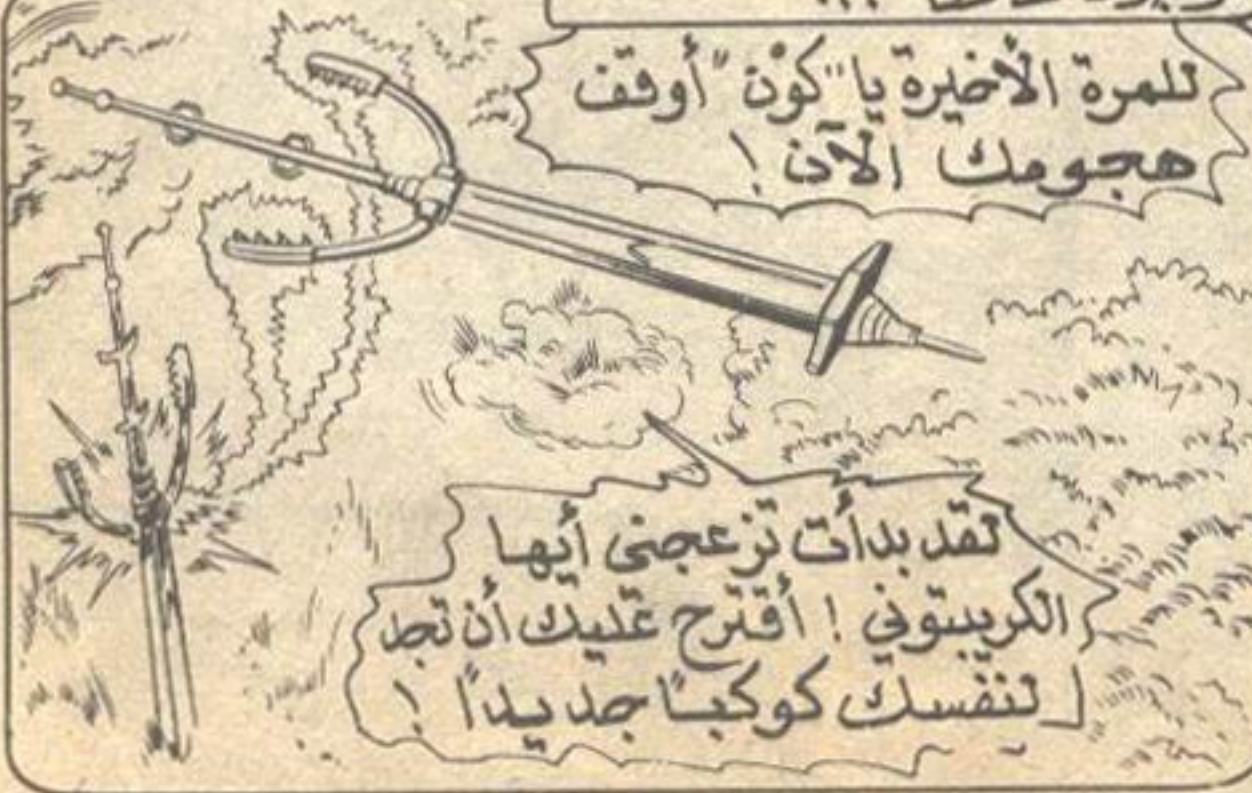 للمرة الأخيرة يا "كوْن" أوقف
هجومك الآن !
لقد بدأت تزعجني أيها
الكريبتوني ! أقترح عليك أن تجد
لنفسك كوكبًا جديدًا !